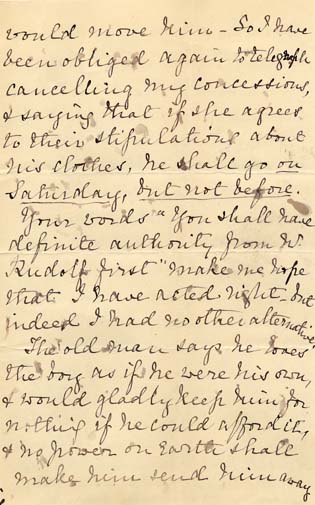 would move him - So I have
been obliged again to telegraph
cancelling my concessions,
& saying that if she agrees
to their stipulations about
his clothes, he shall go on
Saturday, but not before.
Your words "You shall have
definite authority from Mr
Rudolf first" make me hope
that I have acted right, but
indeed I had no other alternative.
The old man says he loves
the boy as if he were his own,
& would gladly keep him for
nothing if he could afford it,
& no power on Earth shall
make him send him away